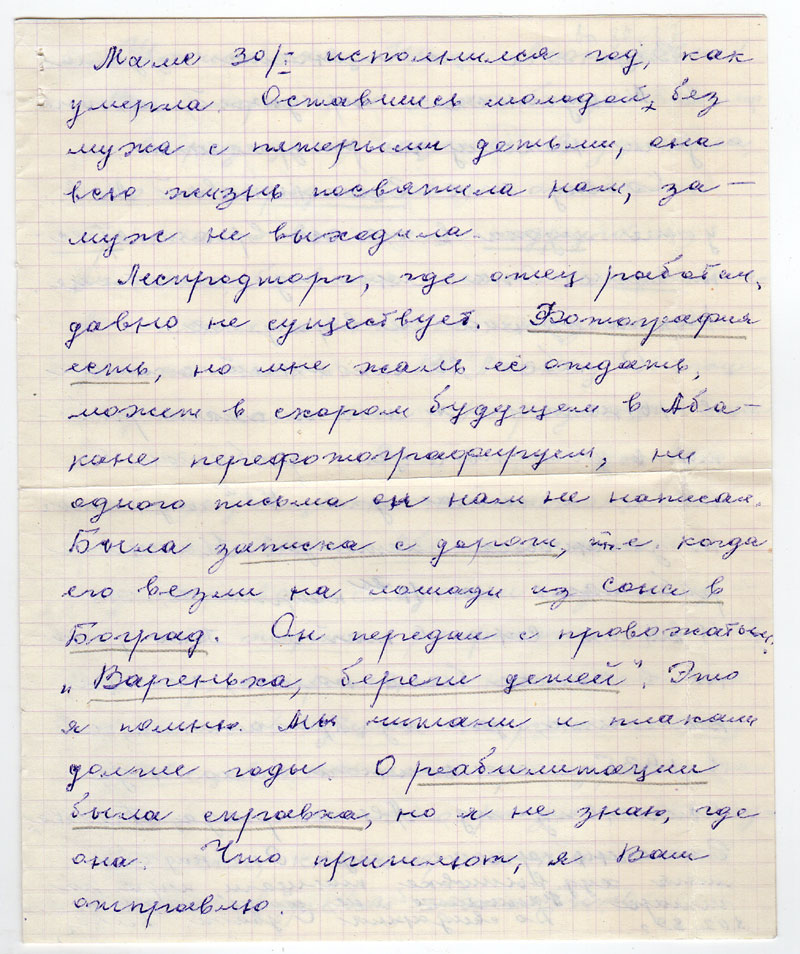 Маме 30/I исполнился год, как
умерла. Оставшись молодой, без
мужа с пятерыми детьми, она
всю жизнь посвятила нам, за-
муж не выходила.
Леспродторг, где отец работал,
давно не существует. Фотография
есть, но мне жаль её отдать,
может в скором будущем в Аба-
кане перефотографируем, ни
одного письма он нам не написал.
Была записка с дороги, т.е. когда
его везли на лошади из Сона в
Боград. Он передал с провожатым:
„Варенька, береги детей". Это
я помню. Мы читали и плакали
долгие годы. О реабилитации
была справка, но я не знаю, где
она. Что пришлют, я Вам
отправлю.